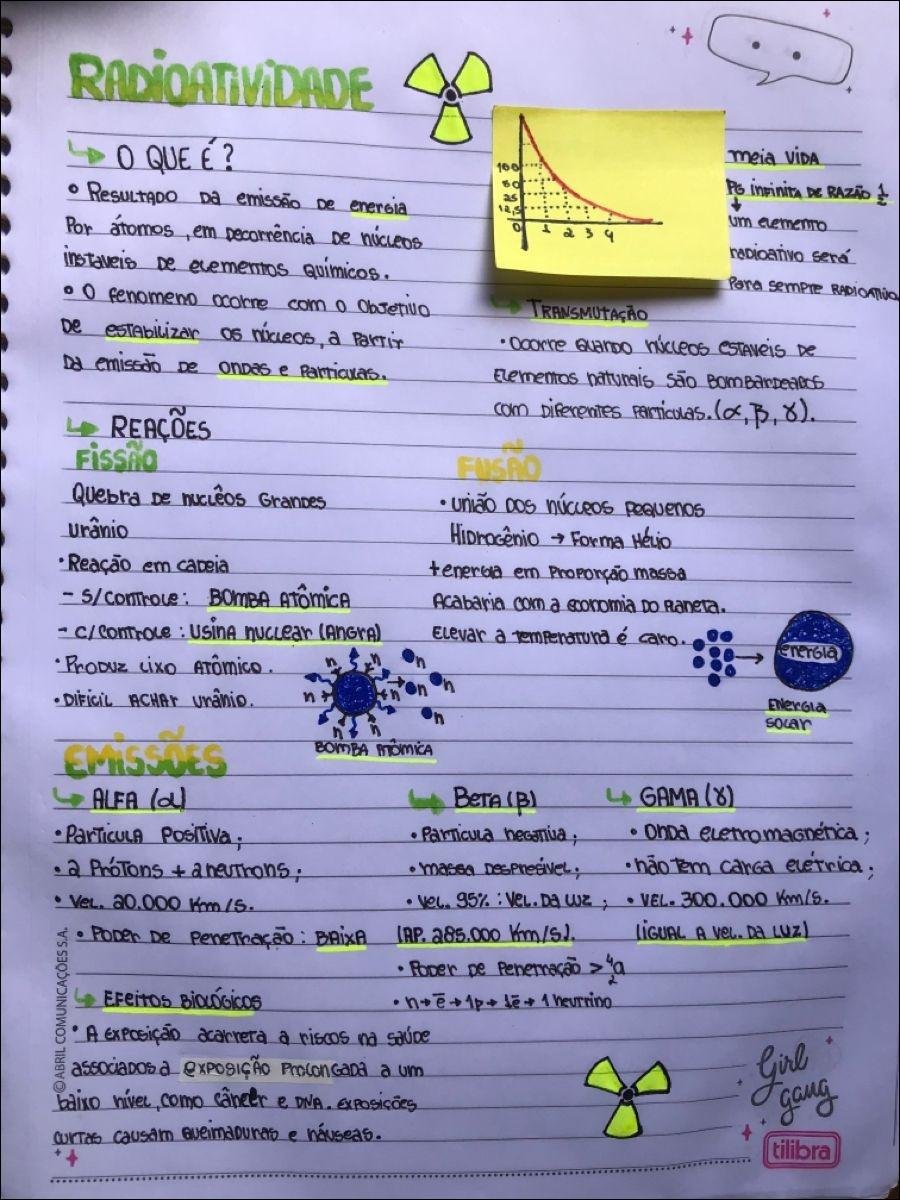 RADIOATIVIDADE
O QUE É?
• RESULTADO DA EMISSÃO DE ENERGIA
POR ÁTOMOS, EM DECORRÊNCIA DE NÚCLEOS
INSTAVEIS DE ELEMENTOS QUÍMICOS.
• O FENOMENO OCORRE COM O OBJETIVO
DE ESTABILIZAR OS NÚCLEOS, A PARTIR
DA EMISSÃO DE ONDAS E PARTICULAS.
100
50
25
12,5
0 1 2 3 4
MEIA VIDA
PG INFINITA DE RAZÃO 1/2
UM ELEMENTO
RADIOATIVO SERÁ
PARA SEMPRE RADIOATIVO
TRANSMUTAÇÃO
• OCORRE QUANDO NÚCLEOS ESTAVEIS DE
ELEMENTOS NATURAIS SÃO BOMBARDEADOS
COM DIFERENTES PARTÍCULAS. (α, β, γ).
REAÇÕES
FISSÃO
QUEBRA DE NUCLÊOS GRANDES
URÂNIO
• REAÇÃO EM CADEIA
- S/CONTROLE: BOMBA ATÔMICA
- C/CONTROLE: USINA NUCLEAR (ANGRA)
• PRODUZ LIXO ATÔMICO.
• DIFICIL ACHAR URÂNIO.
n n n n n n n n n n
BOMBA ATÔMICA
FUSÃO
• UNIÃO DOS NÚCLEOS PEQUENOS
HIDROGÊNIO → FORMA HÉLIO
+ ENERGIA EM PROPORÇÃO MASSA
ACABARIA COM A ECONOMIA DO PLANETA.
ELEVAR A TEMPERATURA É CARO.
ENERGIA
ENERGIA
SOLAR
EMISSÕES
ALFA (α)
• PARTICULA POSITIVA;
• 2 PRÓTONS + 2 NEUTRONS;
• VEL. 20.000 Km/S.
• PODER DE PENETRAÇÃO: BAIXA
BETA (β)
• PARTICULA NEGATIVA;
• MASSA DESPRESÍVEL;
• VEL. 95% : VEL. DA LUZ;
(AP. 285.000 Km/S).
• PODER DE PENETRAÇÃO > ⁴₂α
• n → ē → 1p + 1ē + 1 NEUTRINO
GAMA (γ)
• ONDA ELETROMAGNÉTICA;
• NÃO TEM CARGA ELÉTRICA;
• VEL. 300.000 Km/S.
(IGUAL A VEL. DA LUZ)
EFEITOS BIOLÓGICOS
• A EXPOSIÇÃO ACARRETA A RISCOS NA SAÚDE
ASSOCIADOS A EXPOSIÇÃO PROLONGADA A UM
BAIXO NÍVEL, COMO CÂNCER E DNA. EXPOSIÇÕES
CURTAS CAUSAM QUEIMADURAS E NÁUSEAS.
© ABRIL COMUNICAÇÕES S.A.
Girl
gang
tilibra